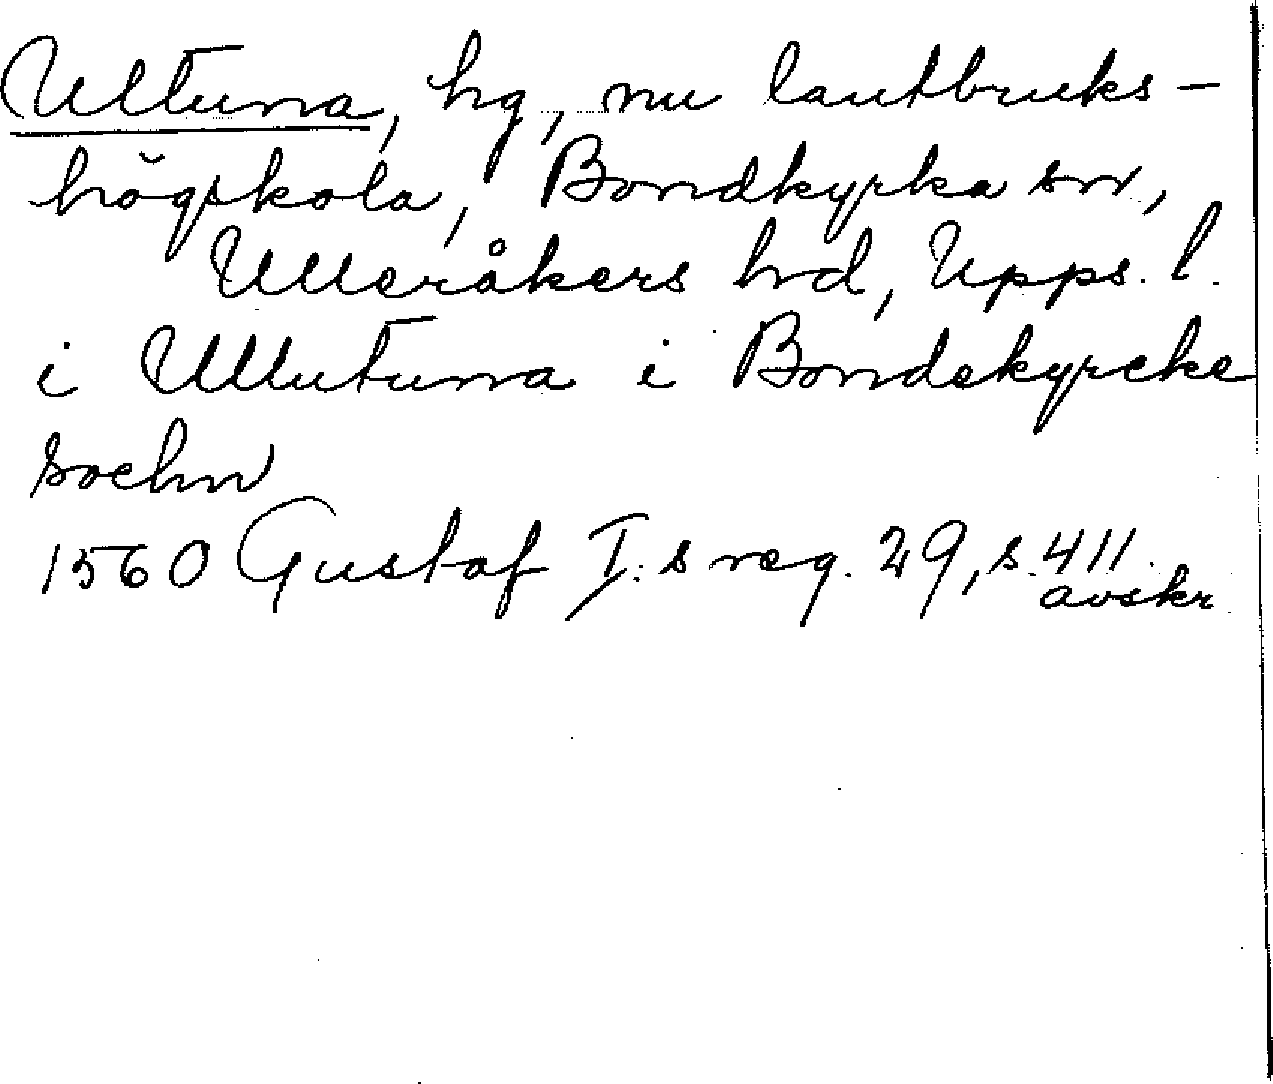 Ultuna, hg, nu lantbruks-
högskola, Bondkyrka sn,
Ulleråkers hd, Upps. l.
i Ullutuna i Bondekyrcke
sochn
1560 Gustaf I:s reg. 29, s. 411.
avskr